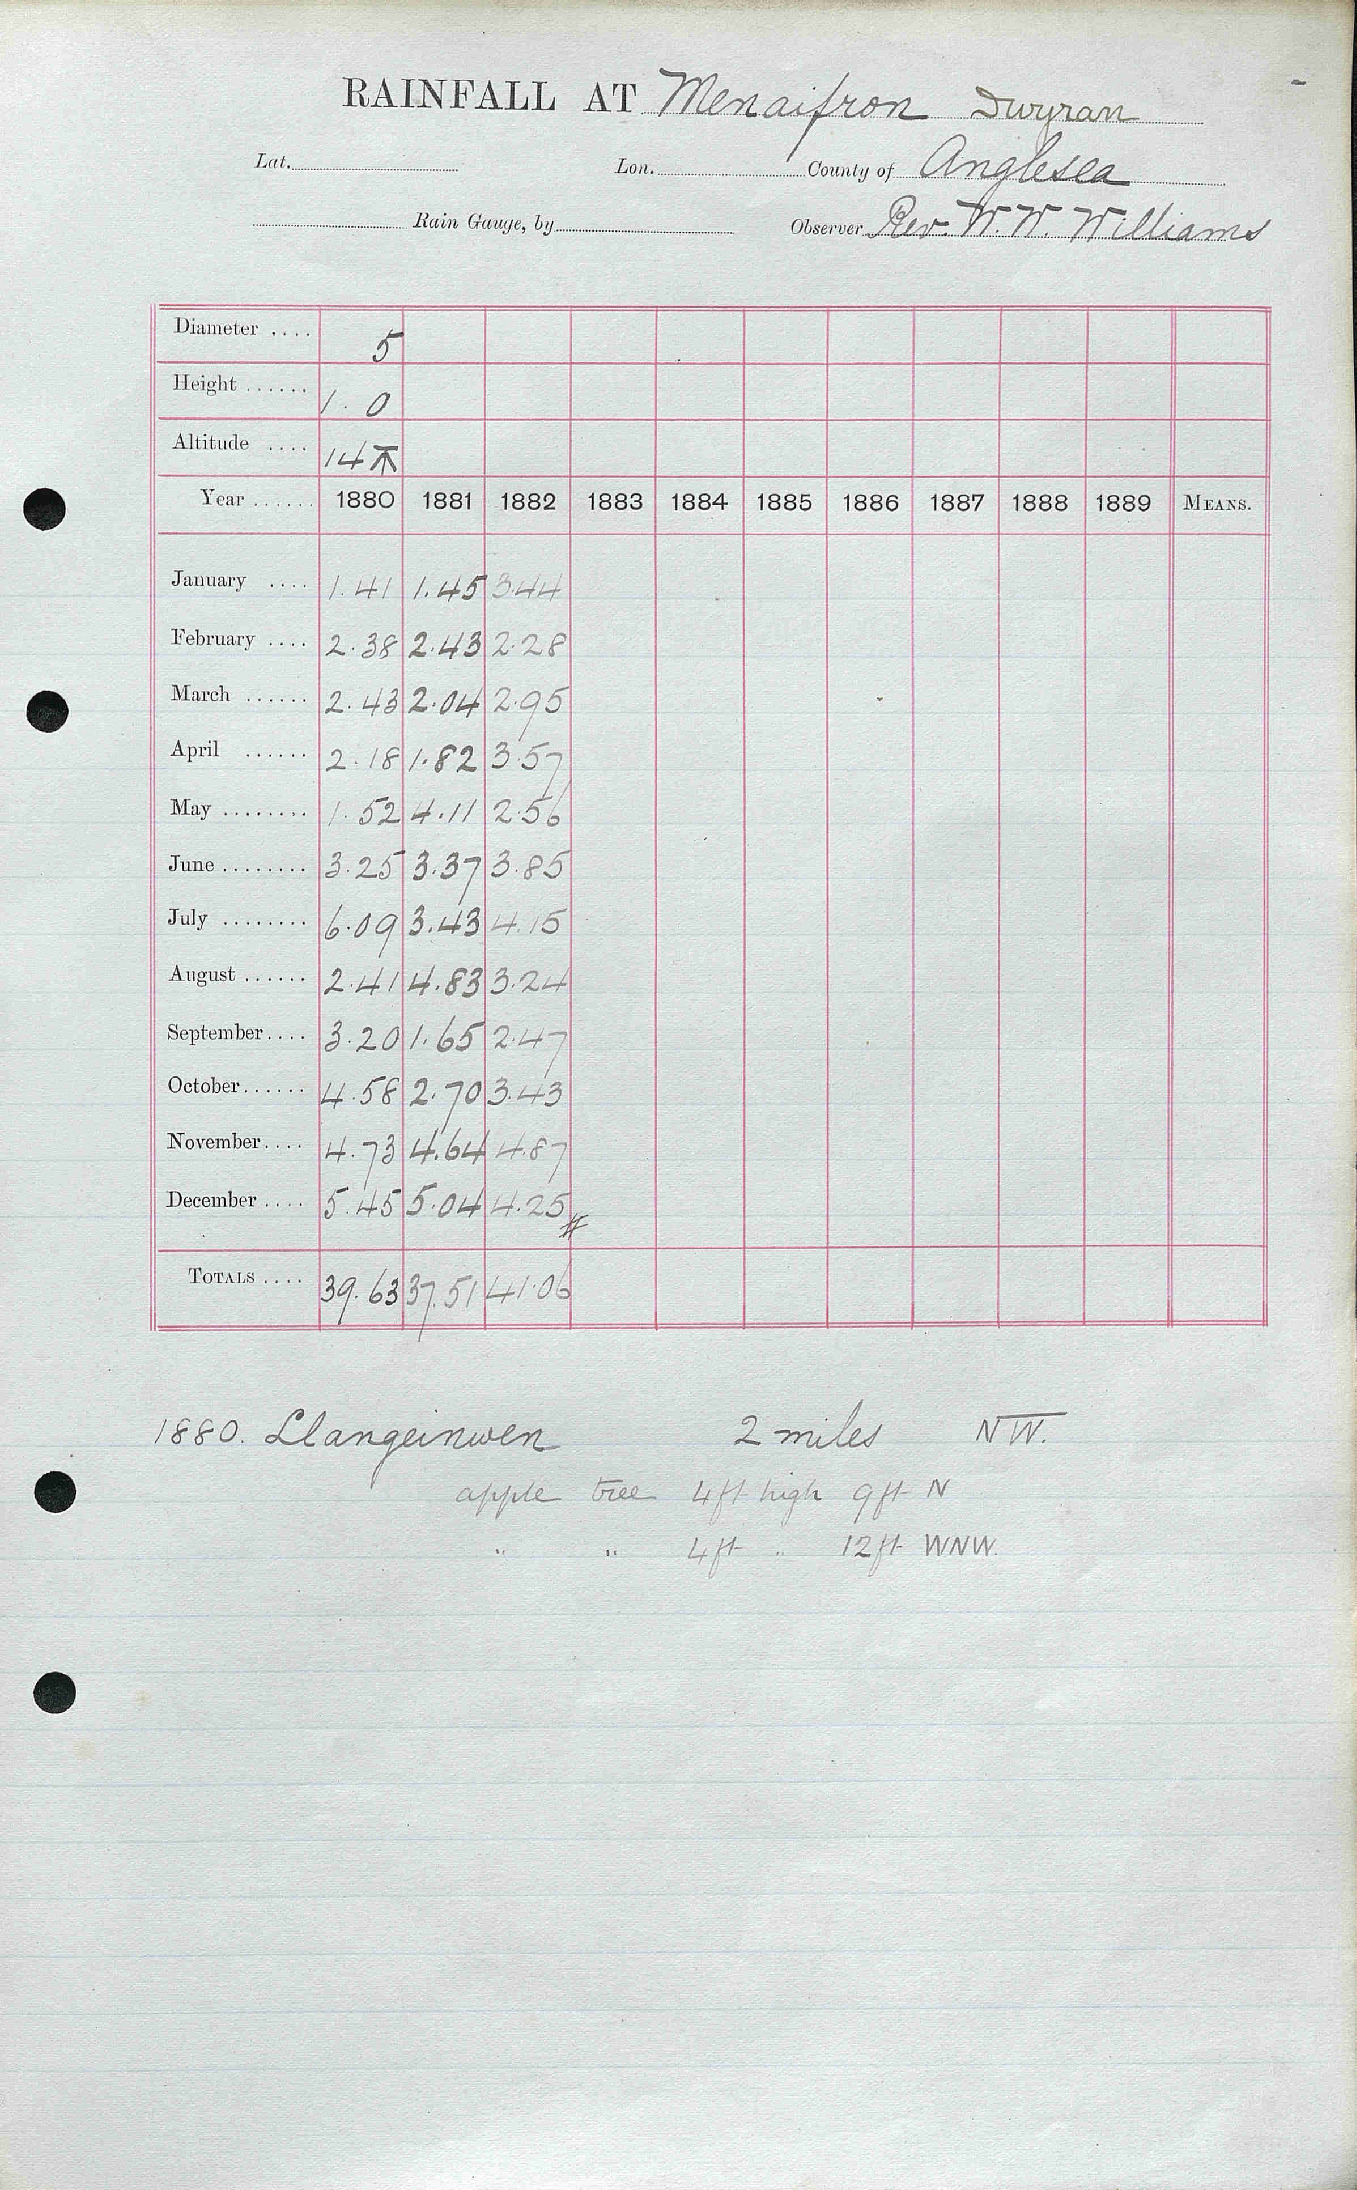 RAINFALL AT Menaifron Dwyran
Lat. Lon. County of Anglesea
Rain Gauge, by Observer Rev. W. W. Williams
Diameter .... 5
Height ...... 1. 0
Altitude .... 14
Year ...... 1880 1881 1882 1883 1884 1885 1886 1887 1888 1889 MEANS.
January .... 1.41 1.45 3.44
February .... 2.38 2.43 2.28
March ...... 2.43 2.04 2.95
April ...... 2.18 1.82 3.57
May ........ 1.52 4.11 2.56
June ........ 3.25 3.37 3.85
July ........ 6.09 3.43 4.15
August ...... 2.41 4.83 3.24
September .... 3.20 1.65 2.47
October ...... 4.58 2.70 3.43
November .... 4.73 4.64 4.87
December .... 5.45 5.04 4.25 #
TOTALS .... 39.63 37.51 41.06
1880. Llangeinwen 2 miles NW.
apple tree 4ft high 9ft N
" " 4ft " 12ft WNW.